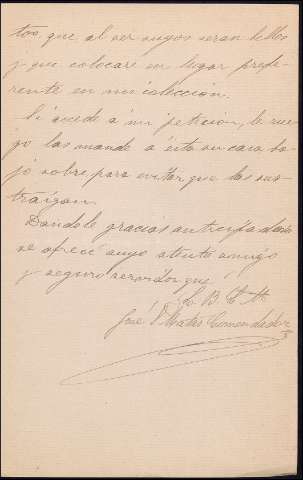 tos, que al ser suyos seran bellos
y que colocaré en lugar prefe-
rente en mi colección.
Si accede á mi petición, le rue-
go los mande á ésta su casa ba-
jo sobre para evitar que los sus-
traigan.
Dándole gracias anticipadas
se ofrece suyo atento amigo
y seguro servidor que
L. B. L. M.
José Mates Comendador